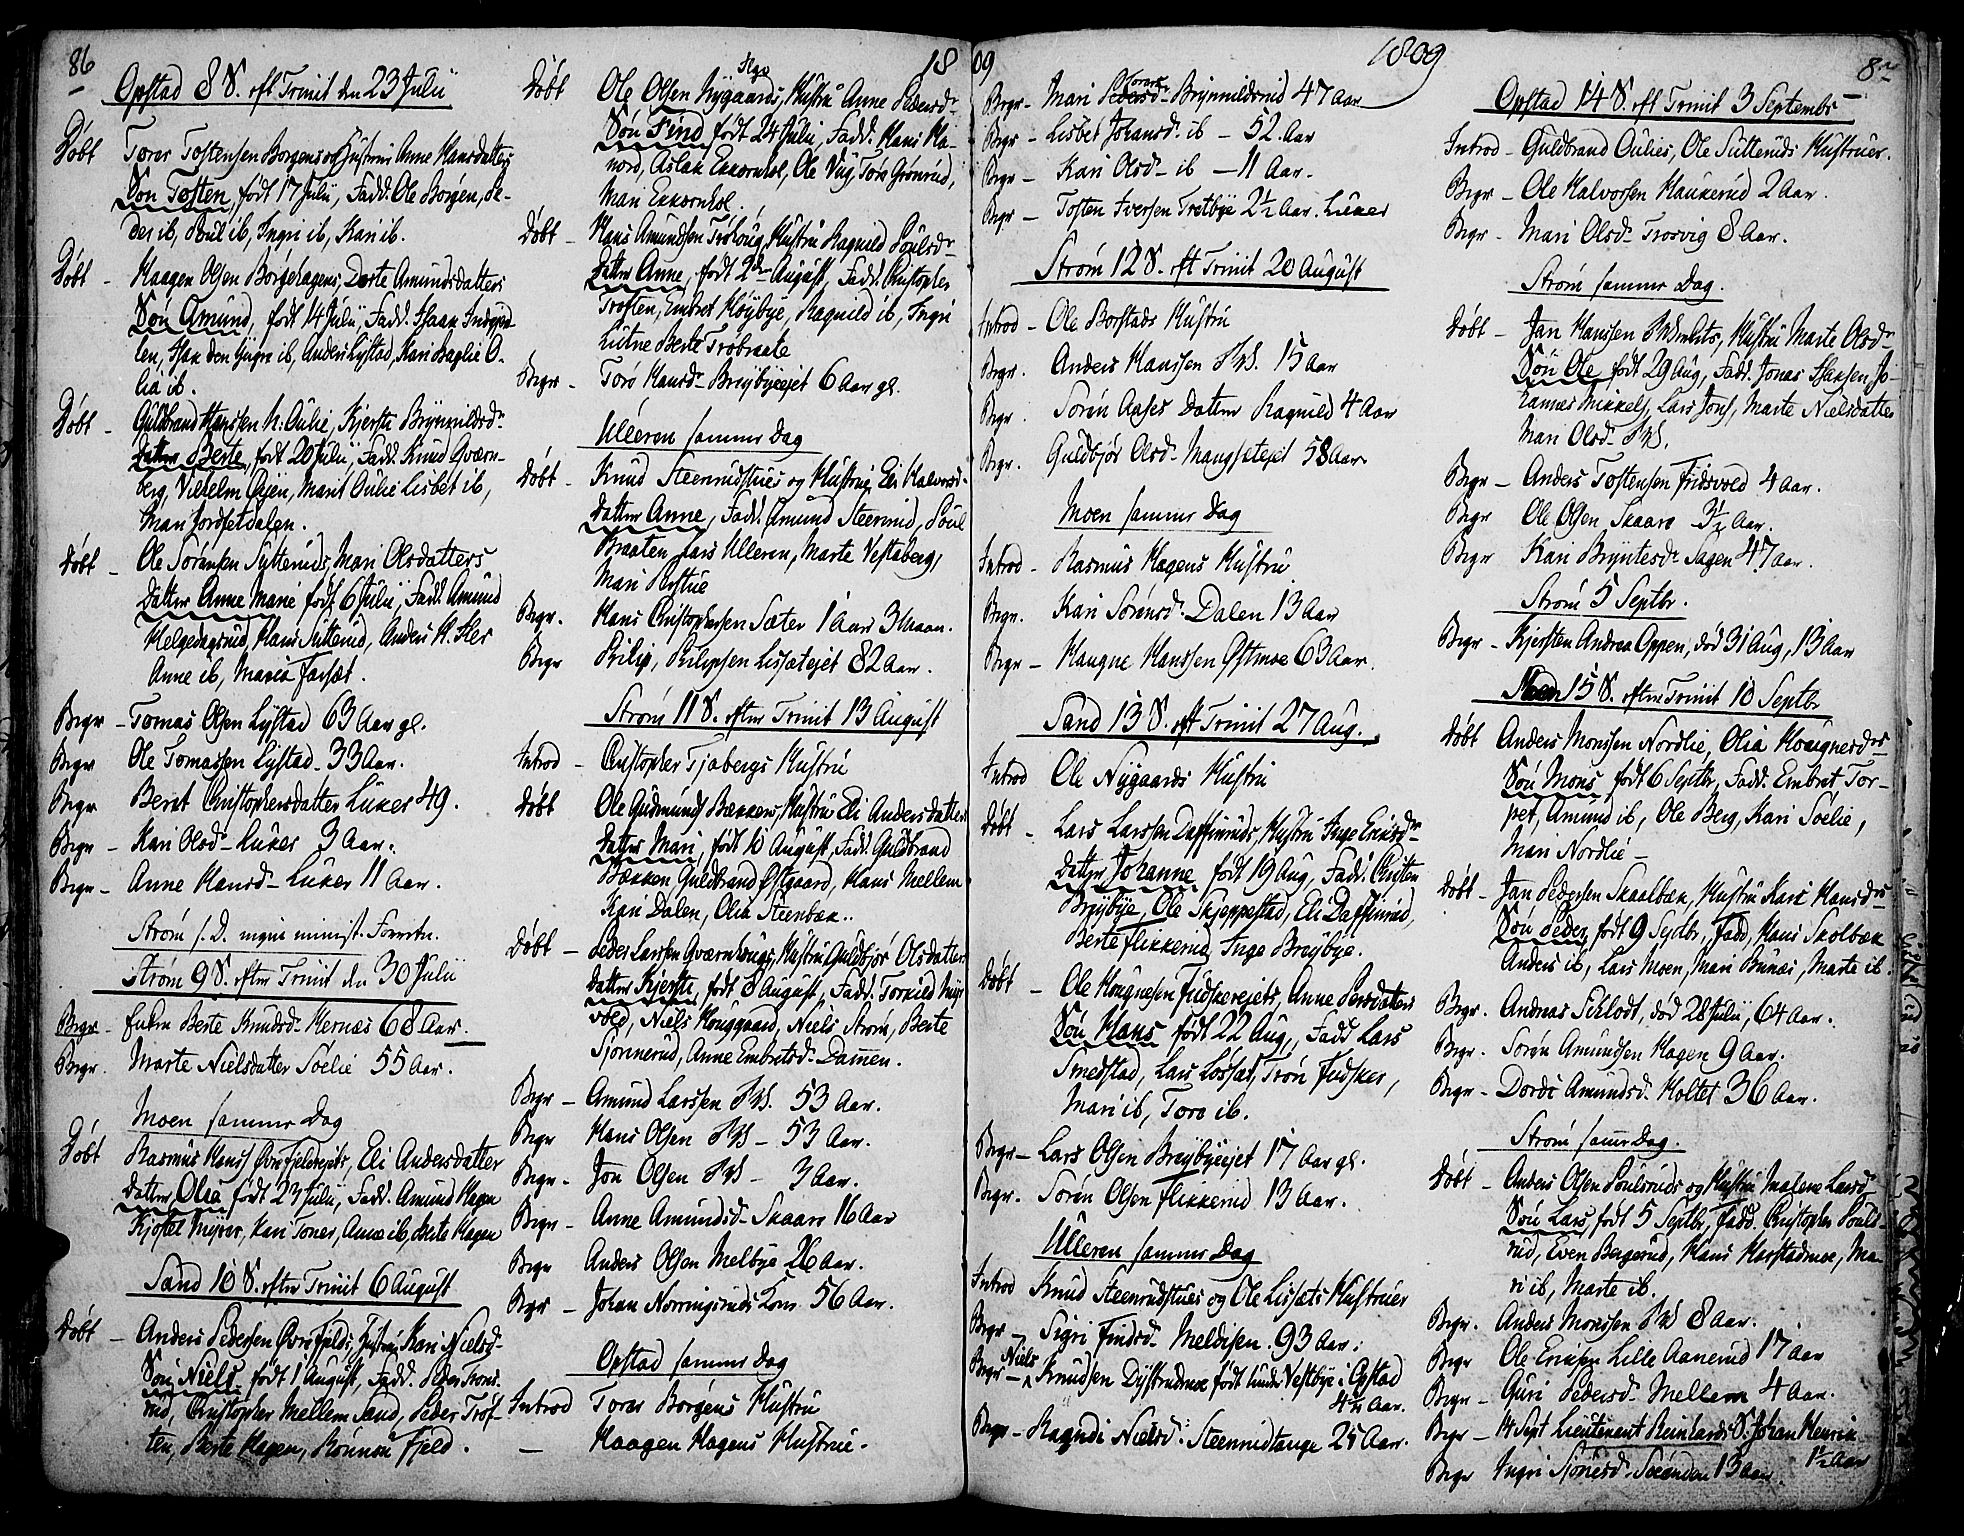 86
Opstad 8 S. eft Trinit den 23 Julii
Døbt Tores Tostensen Borgens og Hustrue Anne Hansdatters
Søn Tosten, født 17 Julii, Fadd. Ole Borgen, Pe-
der ib, Poul ib, Ingri ib, Kari ib.
Døbt - Haagen Olsen Borgehagens, Dorte Amundsdatters
Søn Amund, født 14 Julii, Fadd. Isaak
len, Isak den yngre ib, Anders Lystad, Kari Baglie O-
lia ib.
Døbt - Guldbrand Hanssen N. Aulie, Kjersti Brynildsdr
Datter Berte, født 20 Julii, Fadd. Knud Qværn-
berg, Vilhelm Opsen, Marit Aulie Lisbet ib,
Mari Jordsetdalen.
Døbt - Ole Sørensen Sutteruds, Mari Olsdatters
Datter Anne Marie født 6 Julii, Fadd. Amund
Helgedagsrud, Hans Sutterud, Anders N. Sles
Anne ib, Maria Farsæt.
Begr - Tomas Olsen Lystad 63 Aar gl.
Begr Ole Tomassen Lystad - 33 Aar.
Begr Beret Christophersdatter Luker 49.
Begr - Kari Olsd - Luker 3 Aar.
Begr - Anne Hansd - Luker 11 Aar.
Strøm s. D. ingen minist. Forretn.
Strøm 9 S. efter Trinit den 30 Julii
Begr - Enken Berte Knudsd. Hernæs 68 Aar.
Begr. Marte Nielsdatter Søelie 55 Aar.
Moen samme Dag
Døbt Rasmus Hanss Øvrefjeldsejets, Eli Andersdatter
Datter Olea født 23 Julii, Fadd. Amund Hagen
Kjøstel Myrer, Kari Toner, Anne ib, Berte Hagen
Sand 10 S. efter Trinit 6 August
Døbt - Anders Pedersen Øvre Fjelds, Hustrue Kari Nielsd-
Søn Niels, født 1 August, Fadd. Peder Trons-
rud, Christopher Mellem Sand, Peder Trøf-
ten, Berte Hagen, Rønnou Fjeld.
18
Døbt Ole Olsen Nygaards, Hustru Anne Pedersdr
Søn Find, født 24 Julii, Fadd. Hans Ha-
nord, Aslak Ekkornhol, Ole Vug, Tore Grønrud,
Mari Ekkornhol.
Døbt - Hans Amundsen Trøhoug, Hustru Ragnild Poulsdr
Datter Anne, født 2den August, Fadd. Christopher
Trøften, Embret Høybye, Ragnild ib, Ingri
Lutne Berte Trøbraate
Begr - Torø Hansdr Brøbyeejet 6 Aar gl.
Ulleren samme Dag
Døbt - Knud Steenrudstues og Hustrue Eli Halvorsd-
Datter Anne, Fadd. Amund Steenrud, Poul
Braaten Lars Ulleren, Marte Vestaberg,
Mari Perstue
Begr. Hans Christophersen Sæter 1 Aar 3 Maan.
Begr Philip, Philipsen Lissætejet 82 Aar.
Strøm 11 S. efter Trinit 13 August
Introd - Christopher Tjabergs Hustru
Døbt Ole Gudmunds Bækkens, Hustrue Eli Andersdatter
Datter Mari, født 10 August, Fadd. Guldbrand
Bækken Guldbrand Østgaard, Hans Mellem
Kari Dalen, Olia Steenbæk.
Døbt - Peder Larsen Qværnhougs, Hustrue Guldbjør Olsdatter
Datter Kjersti, født 8 August, Fadd. Torkild Myr
vold, Niels Houggaard, Niels Strøm, Berte
Sjonnerud, Anne Embretsd. Dammen.
Begr - Amund Larssen PW. 53 Aar.
Begr Hans Olsen PW - 53 Aar.
Begr. Jon Olsen PW - 3 Aar.
Begr - Anne Amundsd. Skaare 16 Aar
Begr Anders Olsen Melbye 26 Aar.
Begr - Johan Norringsruds Kone. 56 Aar.
Opstad samme Dag
Introd Tores Borgens Hustru
- Haagen Hagens Hustrue.
09
1809
Begr - Mari Tores Pedersdr Brynnildsrud 47 Aar
Begr - Lisbet Johansd. ib - 52. Aar
Begr - Kari Olsd - ib - 11 Aar.
Begr - Tosten Iversen Tretbye 2½ Aar. Luker
Strøm 12 S. eft Trinit 20 August
Introd - Ole Borstads Hustru
Begr. Anders Hanssen PW. 15 Aar
Begr. Søren Aases Datter Ragnild 4 Aar
Begr. Guldbjør Olsd - Mangsetejet 58 Aar
Moen samme Dag
Introd - Rasmus Hagens Hustru
Begr. Kari Sørensd. Dalen 13 Aar
Begr - Haagne Hanssen Østmoe 63 Aar.
Sand 13 S. eft Trinit 27 Aug.
Introd Ole Nygaards Hustru
Døbt - Lars Larssen Daffinruds, Hustru Inge Ericsdr
Datter Johanne født 19 Aug, Fadd. Christen
Brøbye, Ole Skjeppestad, Eli Daffinrud,
Berte Flikkerud, Inge Brøbye.
Døbt - Ole Hougnesen Fudskerejets, Anne Persdatters
Søn Hans født 22 Aug., Fadd Lars
Smedstad, Lars Løssæt, Trøn Fudsker,
Mari ib, Tore ib.
Begr - Lars Olsen Brøbyeejet 17 Aar gl.
Begr. Søren Olsen Flikkerud 13 Aar.
Ulleren samme Dag
Introd Knud Steenrudstues og Ole Lissæts Hustruer
Begr - Sigri Findsd. Meldisen. 93 Aar.
Begr - Niels Knudsen Dystrudmoe født under Vestbye i Opstad
4½ Aar.
Begr - Ragndi Nielsd. Steenrudtange 25 Aar.
87
Opstad 14 S. eft Trinit 3 Septembr
Introd - Guldbrand Oulies, Ole Sutteruds Hustruer.
Begr - Ole Halvorsen Haukerud 2 Aar.
Begr - Mari Olsd - Trosvig 8 Aar.
Strøm samme Dag.
Døbt - Jan Hanssen PW, Hustru Marte Olsdr
Søn Ole født 29 Aug, Fadd. Jonas Isaksen, Jo-
hannes Mikkels, Lars Jons, Marte Nielsdatter
Mari Olsd. PW.
Begr - Anders Tostensen Fridsvold 4 Aar.
Begr Ole Olsen Skaare 3½ Aar.
Begr Kari Bryntesd. Sagen 47 Aar.
Strøm 5 Septbr.
Begr - Kjersten Andrea Oppen, død 31 Aug, 13 Aar
15 S. efter Trinit 10 Septbr
Døbt Anders Monssen Nordlie, Olia Hougnesdrs
Søn Mons født 6 Septbr, Fadd. Embret Tor-
pet, Amund ib, Ole Berg, Kari Søelie,
Mari Nordlie -
Døbt - Jan Pedersen Skaalbæk, Hustru Kari Hansdrs
Søn Peder, født 9 Septbr, Fadd, Hans Skolbæk
Anders ib, Lars Moen, Mari Bunæs, Marte ib.
Begr. Andreas Schlodt, død 28 Julii, 64 Aar.
Begr. Søren Amundsen Hagen 9 Aar.
Begr - Dordi Amundsd. Holtet 36 Aar.
Strøm samme Dag.
Døbt - Anders Olsen Poulsruds og Hustru Malene Larsd
Søn Lars, født 5 Septbr, Fadd. Christopher Pouls-
rud, Even Bergerud, Hans Harstadmoe, Ma-
ri ib, Marte ib.
Begr. Anders Monssen PW 8 Aar.
Begr Ole Ericsen Lille Aanerud 17 Aar
Begr - Guri Pedersd. Mellem 4 Aar.
Begr - 14 Sept Lieutenant Reinhardt S. Johan Henrik
1½ Aar
Begr Ingri Sjonesd. 13 Aar.